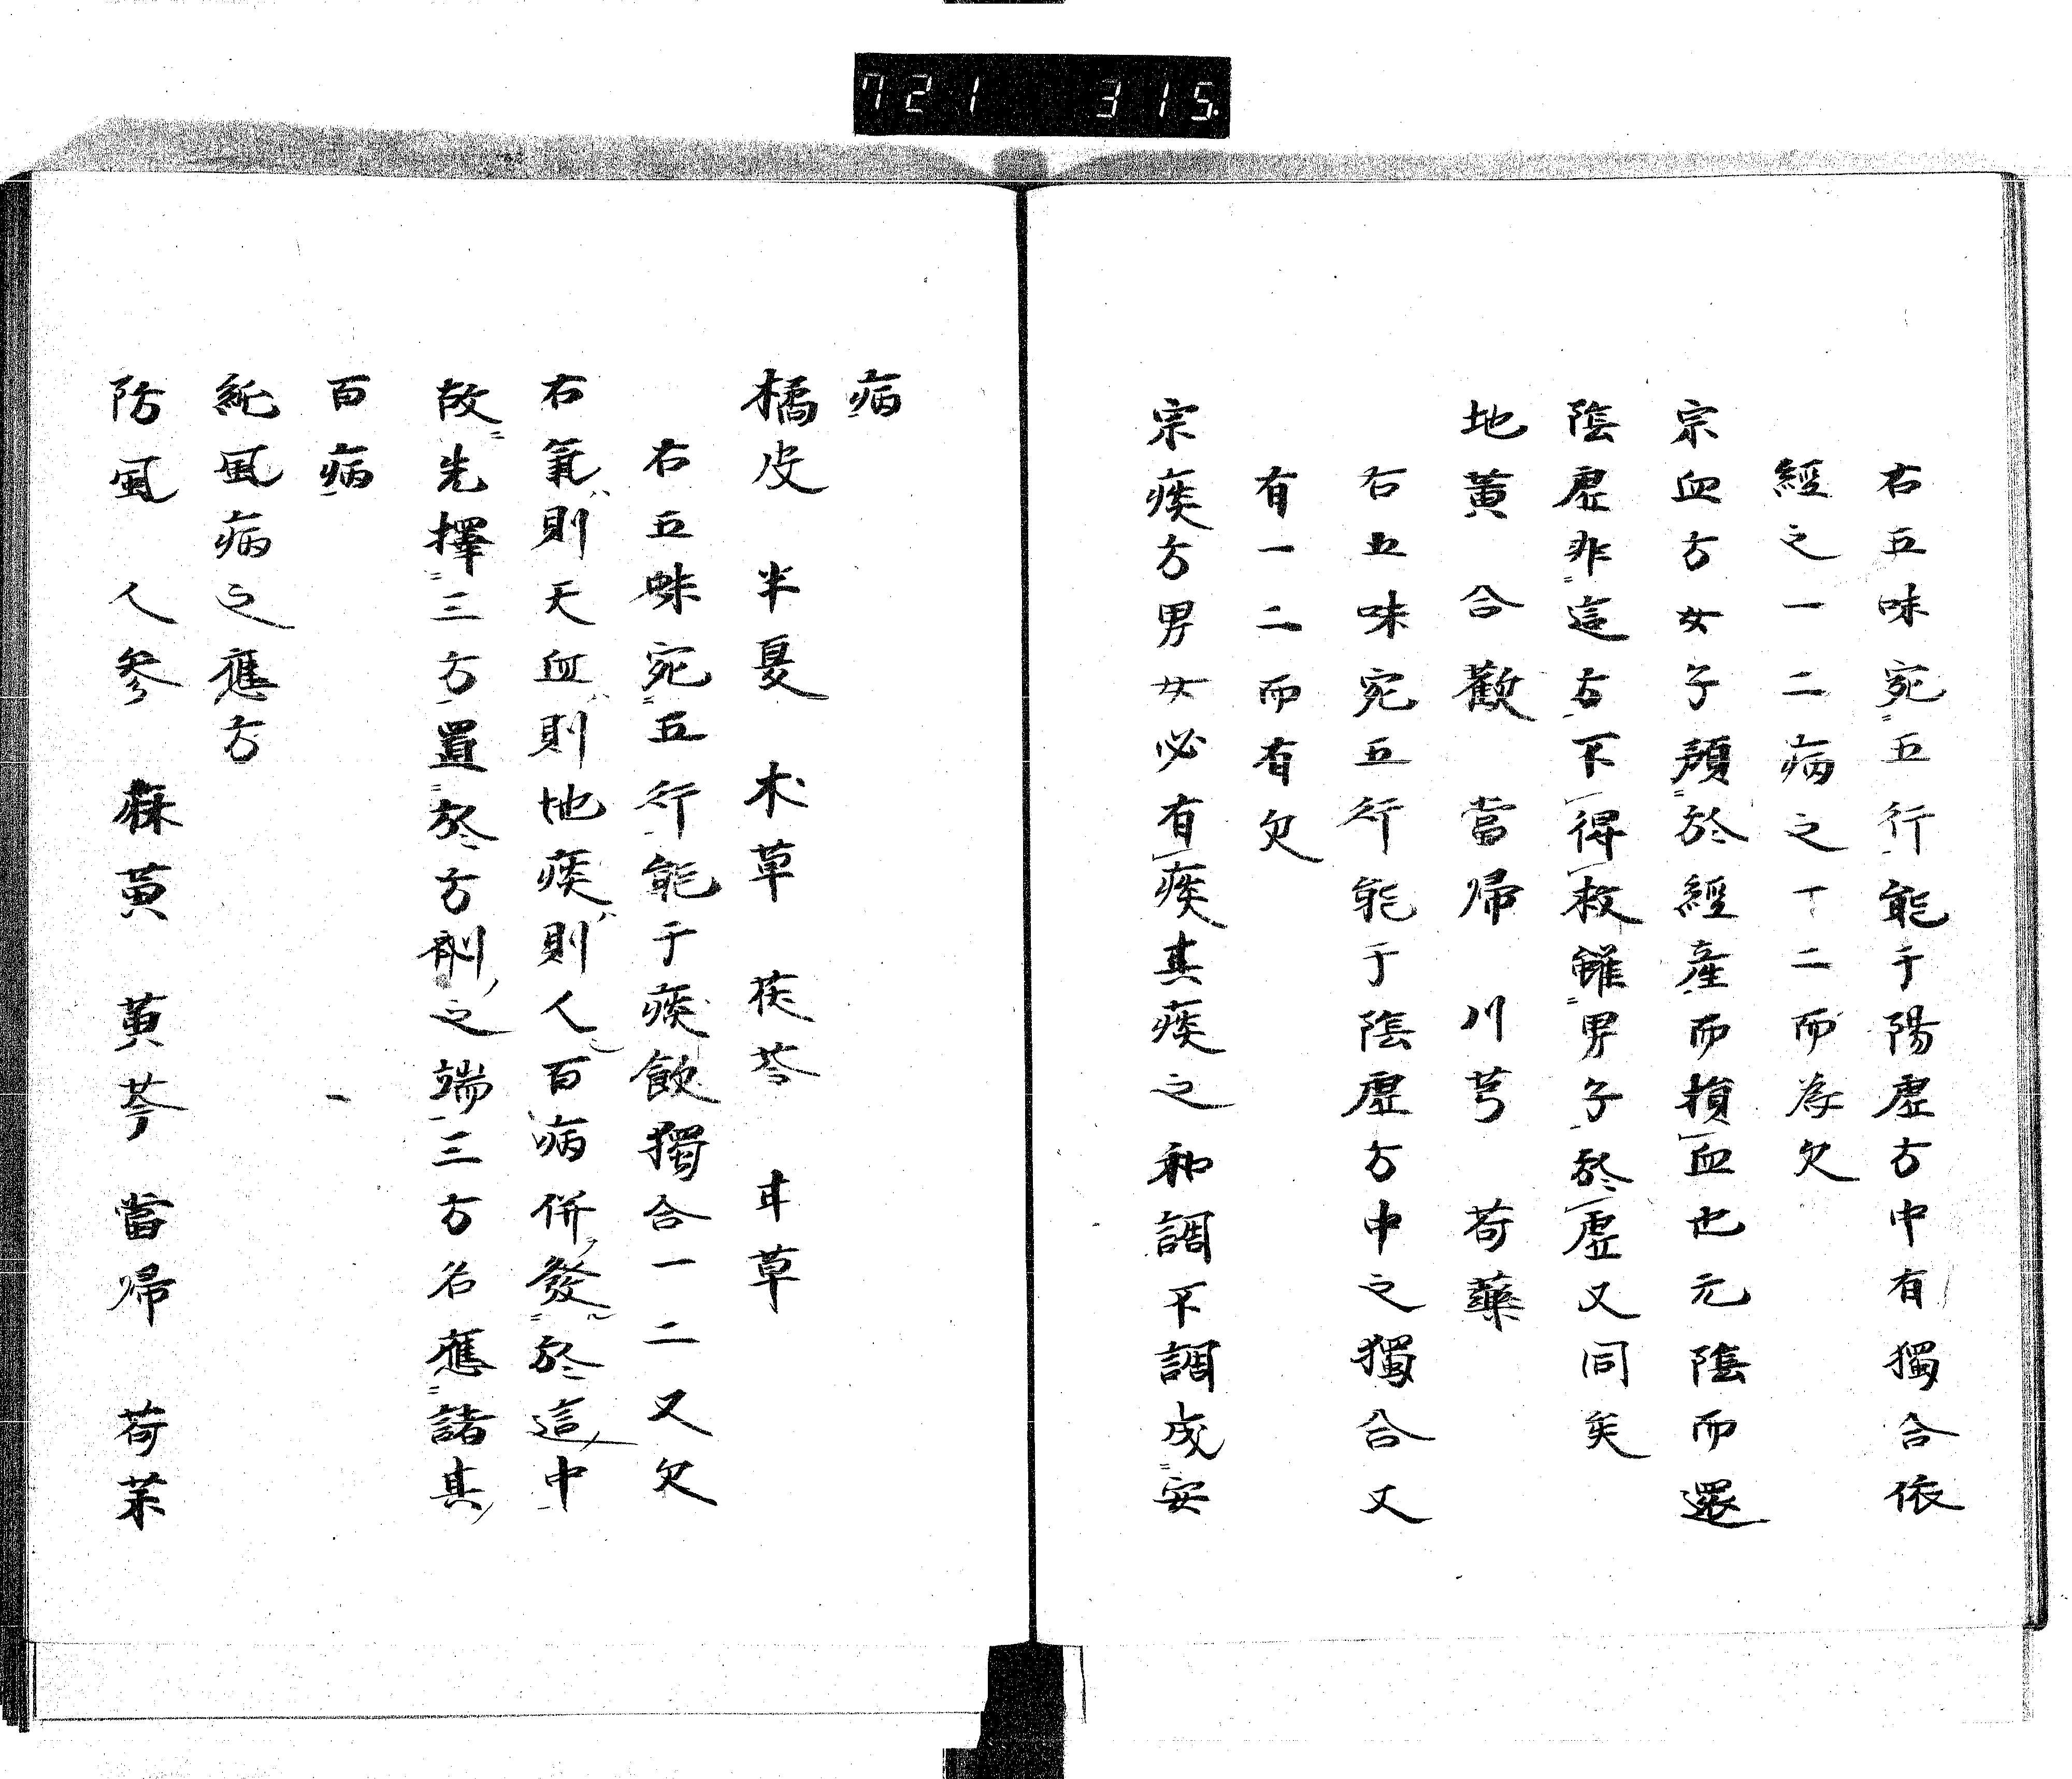 721 315.
右五味宛五行能于陽虚方中有獨合依
經之一二病之丁二而為欠
宗血方女子顏於經產而損血也元陰而還
陰虚非這方不得救雖男子於虚又同矣
地黃 合歡 當帰 川芎 荷藥
右五味宛五行能于陰虚方中之獨合又
有一二而有欠
宗痰方男女必有痰其痰之和調不調成安
病
橘皮 半夏 木草 茯苓 甘草
右五味宛五行能于痰飲獨合一二又欠
右氣則天血則地痰則人百病併發於這中
故先擇三方置於方劑之端三方名應諸其
百病
純風病之應方
防風 人參 麻黃 黃芩 當帰 荷葉